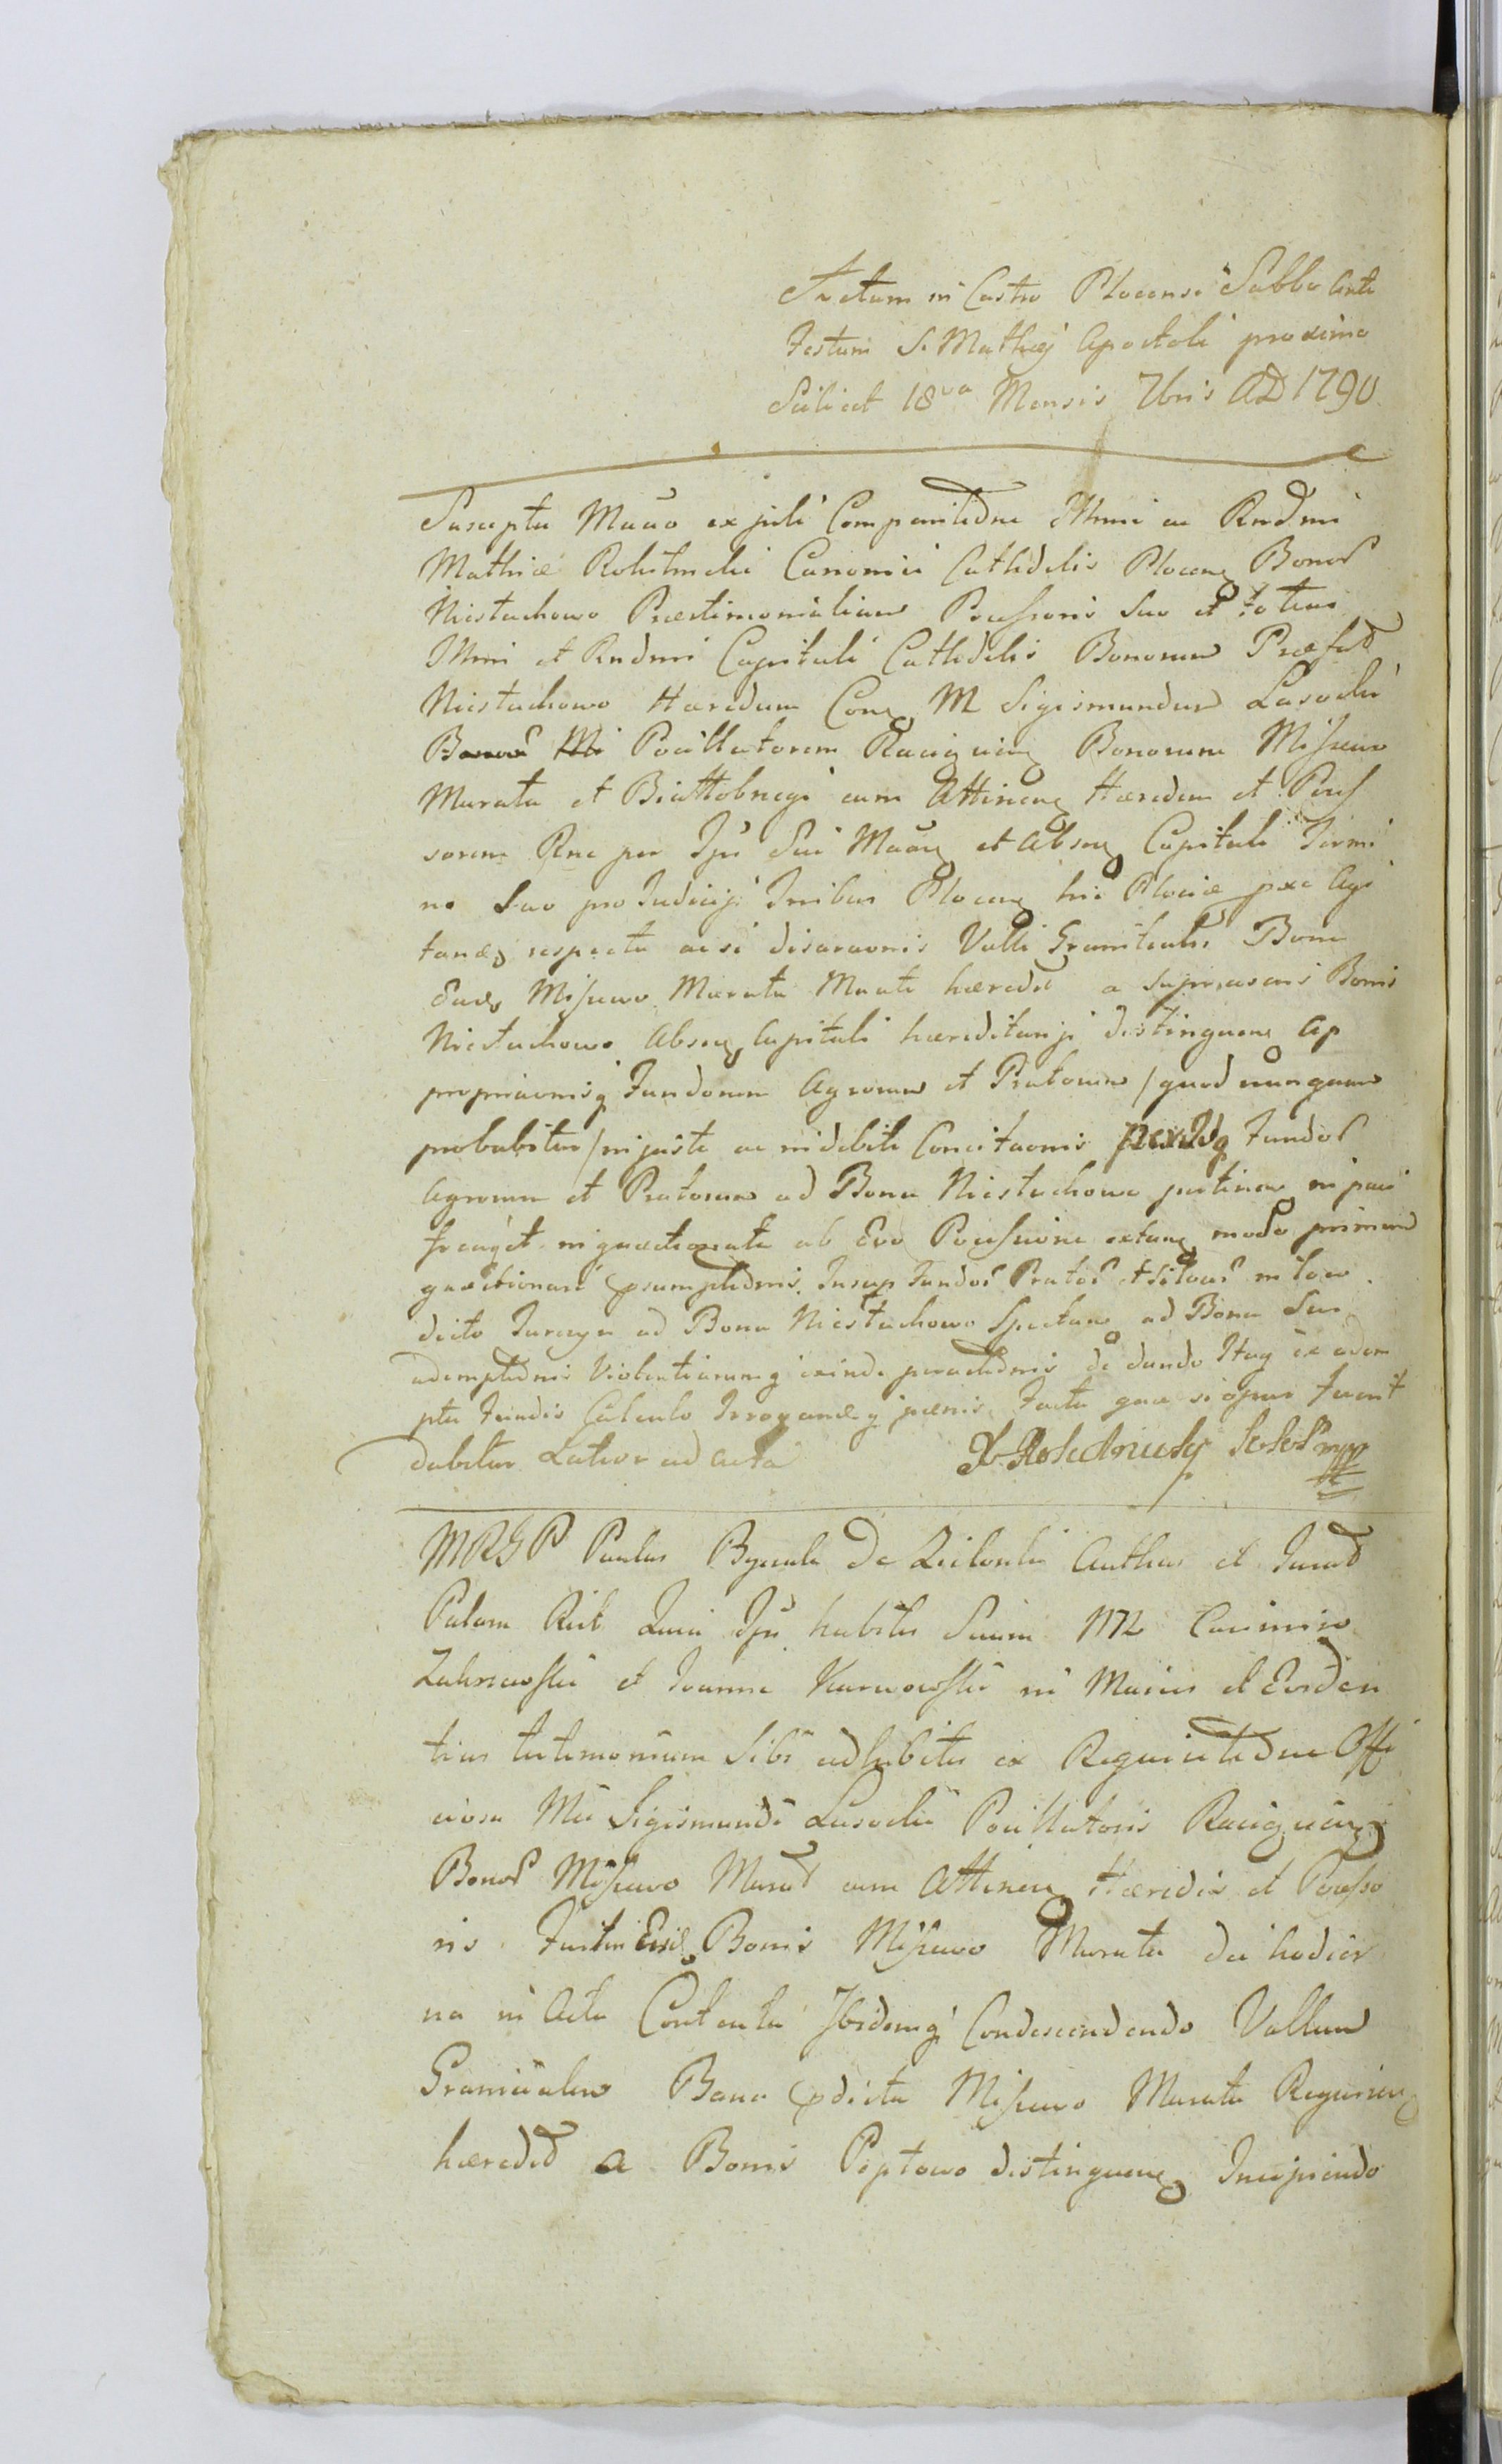 Actum in Castro Plocensi Sabbo Ante
Festum S. Mathaej Apostoli proximo
Scilicet 18va Mensis 7bris AD 1790
Suscepta Maāo ex jnli Comparitiõne Illmi ac Rndmi
Mathiæ Canonici Cathdlis Plocen Bonor
Niestuchowo Præstimonialium Possessoris Suo et totius
Illmi et Rndmi Capituli Cathdlis Bonorum Præfat
Niestuchowo Hæredum Con M Sigismundum Lasocki
Pocillatorem Raciązien Bonorum Miszewo
Murata et Białłobrzegi cum Attinen Hæredem et Posses
sorem Rne per Ipsū Sui Maāc et Absen Capituli Termi
no Suo pro Judicijs Tribus Plocen hic Plociæ
tandis respectu acsi Valli Granitialis Bona
Ead Miszewo Murata Maate hæredit a suprascris Bonis
Niestuchowo Absen Capituli hæreditarijs distinguen Ap
propriaonisq Fundorum Agrorum et Pratorum /quod nunquam
probabitur/ injuste ac indebite Concitaonis Fundor
Agrorum et Pratorum ad Bona Niestuchowo pertinen in paci
fica et inquestionata ab Evo Possessione extan modo primum
quæstionari præsumptiõnis. Insup Fundor Prator et Silvar in loco
dicto ad Bona Niestuchowo Spectan ad Bona Sua
ademptiõnis Violentiarumq exinde peractiõnis de dando Itaq ex adem
ptis Fundis Calculo Irrogandisq pænis. Facta quæ si opus fuerit
dabitur Latior ad acta
MRGP Paulus de Zielonki Author et Jurat
Palam Rick Quia Ipse habitis Secum MM Casimiro
Zakrzewski et Joanne Karwowski in Maius et Eviden
tius testimonium Sibi adhibitis ex Requisitiõne Offi
ciosa Mci Sigismundi Lasocki Pocillatoris Raciązien
Bonor Miszewo Murat cum Attinen Hæredis et Possesso
ris Bonis Miszewo Murata die hodier
na in Actu Contenta Ibidemq Condescendendo Vallum
Granicialem Bona prædicta Miszewo Murata Requiren
hæredit a Bonis Peptowo distinguen Incipiendo